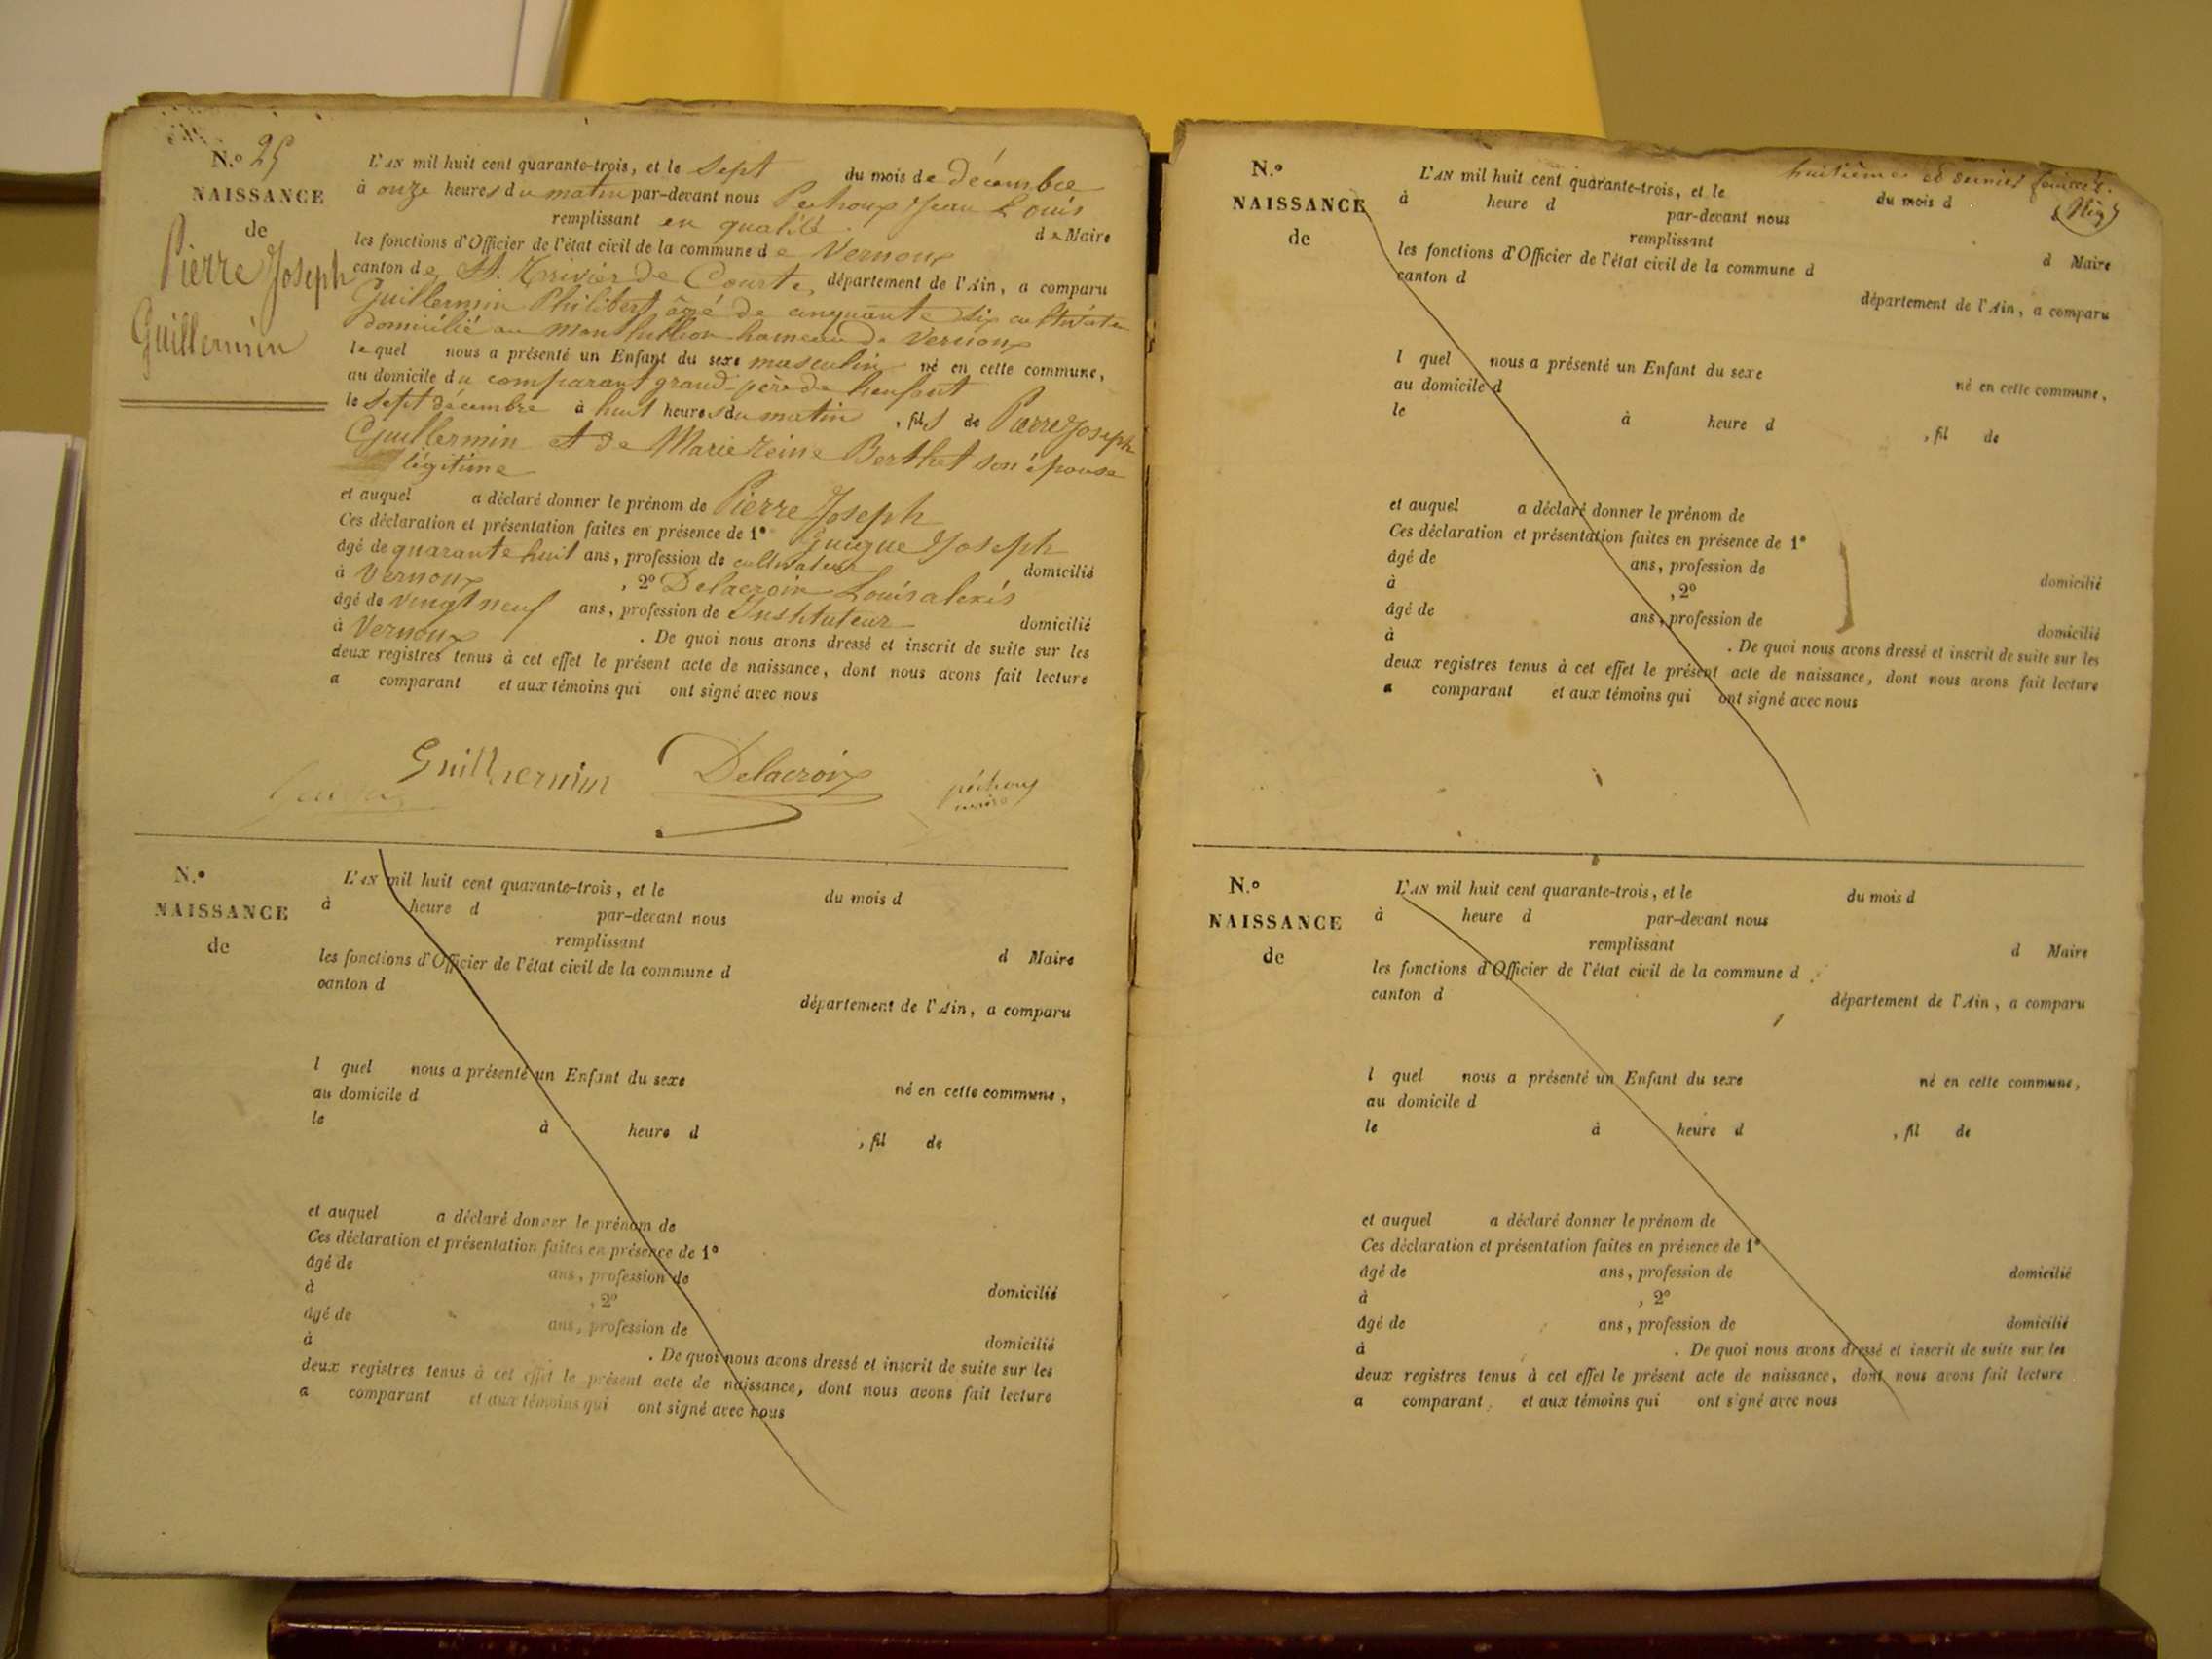 N.º 25
NAISSANCE
de
Pierre Joseph
Guillermin
L'AN mil huit cent quarante-trois, et le sept du mois de décembre
à onze heures du matin par-devant nous Pechoux Jean Louis
remplissant en qualité de Maire
les fonctions d'Officier de l'état civil de la commune de Vernoux
canton de St. Trivier de Courte, département de l'Ain, a comparu
Guillermin Philibert âgé de cinquante six cultivateur
domicilié au hameau de Vernoux
lequel nous a présenté un Enfant du sexe masculin né en cette commune,
au domicile du comparant grand-père de lenfant
le sept décembre à huit heures du matin, fils de Pierre Joseph
Guillermin et de Marie reine Berthet son épouse
légitime
et auquel a déclaré donner le prénom de Pierre Joseph
Ces déclaration et présentation faites en présence de 1º Guigue Joseph
âgé de quarante huit ans, profession de cultivateur domicilié
à Vernoux, 2º Delacroix Louis alexis
âgé de vingt neuf ans, profession de Instituteur domicilié
à Vernoux. De quoi nous avons dressé et inscrit de suite sur les
deux registres tenus à cet effet le présent acte de naissance, dont nous avons fait lecture
a comparant et aux témoins qui ont signé avec nous
Guillermin Delacroix péchoux
maire
N.º
NAISSANCE
de
L'AN mil huit cent quarante-trois, et le du mois d
à heure d par-devant nous
remplissant d Maire
les fonctions d'Officier de l'état civil de la commune d
canton d département de l'Ain, a comparu
l quel nous a présenté un Enfant du sexe né en cette commune,
au domicile d
le à heure d , fil de
et auquel a déclaré donner le prénom de
Ces déclaration et présentation faites en présence de 1º
âgé de ans, profession de domicilié
à , 2º
âgé de ans, profession de domicilié
à . De quoi nous avons dressé et inscrit de suite sur les
deux registres tenus à cet effet le présent acte de naissance, dont nous avons fait lecture
a comparant et aux témoins qui ont signé avec nous
huitième et dernier
N.º
NAISSANCE
de
L'AN mil huit cent quarante-trois, et le du mois d
à heure d par-devant nous
remplissant d Maire
les fonctions d'Officier de l'état civil de la commune d
canton d département de l'Ain, a comparu
l quel nous a présenté un Enfant du sexe né en cette commune,
au domicile d
le à heure d , fil de
et auquel a déclaré donner le prénom de
Ces déclaration et présentation faites en présence de 1º
âgé de ans, profession de domicilié
à , 2º
âgé de ans, profession de domicilié
à . De quoi nous avons dressé et inscrit de suite sur les
deux registres tenus à cet effet le présent acte de naissance, dont nous avons fait lecture
a comparant et aux témoins qui ont signé avec nous
N.º
NAISSANCE
de
L'AN mil huit cent quarante-trois, et le du mois d
à heure d par-devant nous
remplissant d Maire
les fonctions d'Officier de l'état civil de la commune d
canton d département de l'Ain, a comparu
l quel nous a présenté un Enfant du sexe né en cette commune,
au domicile d
le à heure d , fil de
et auquel a déclaré donner le prénom de
Ces déclaration et présentation faites en présence de 1º
âgé de ans, profession de domicilié
à , 2º
âgé de ans, profession de domicilié
à . De quoi nous avons dressé et inscrit de suite sur les
deux registres tenus à cet effet le présent acte de naissance, dont nous avons fait lecture
a comparant et aux témoins qui ont signé avec nous